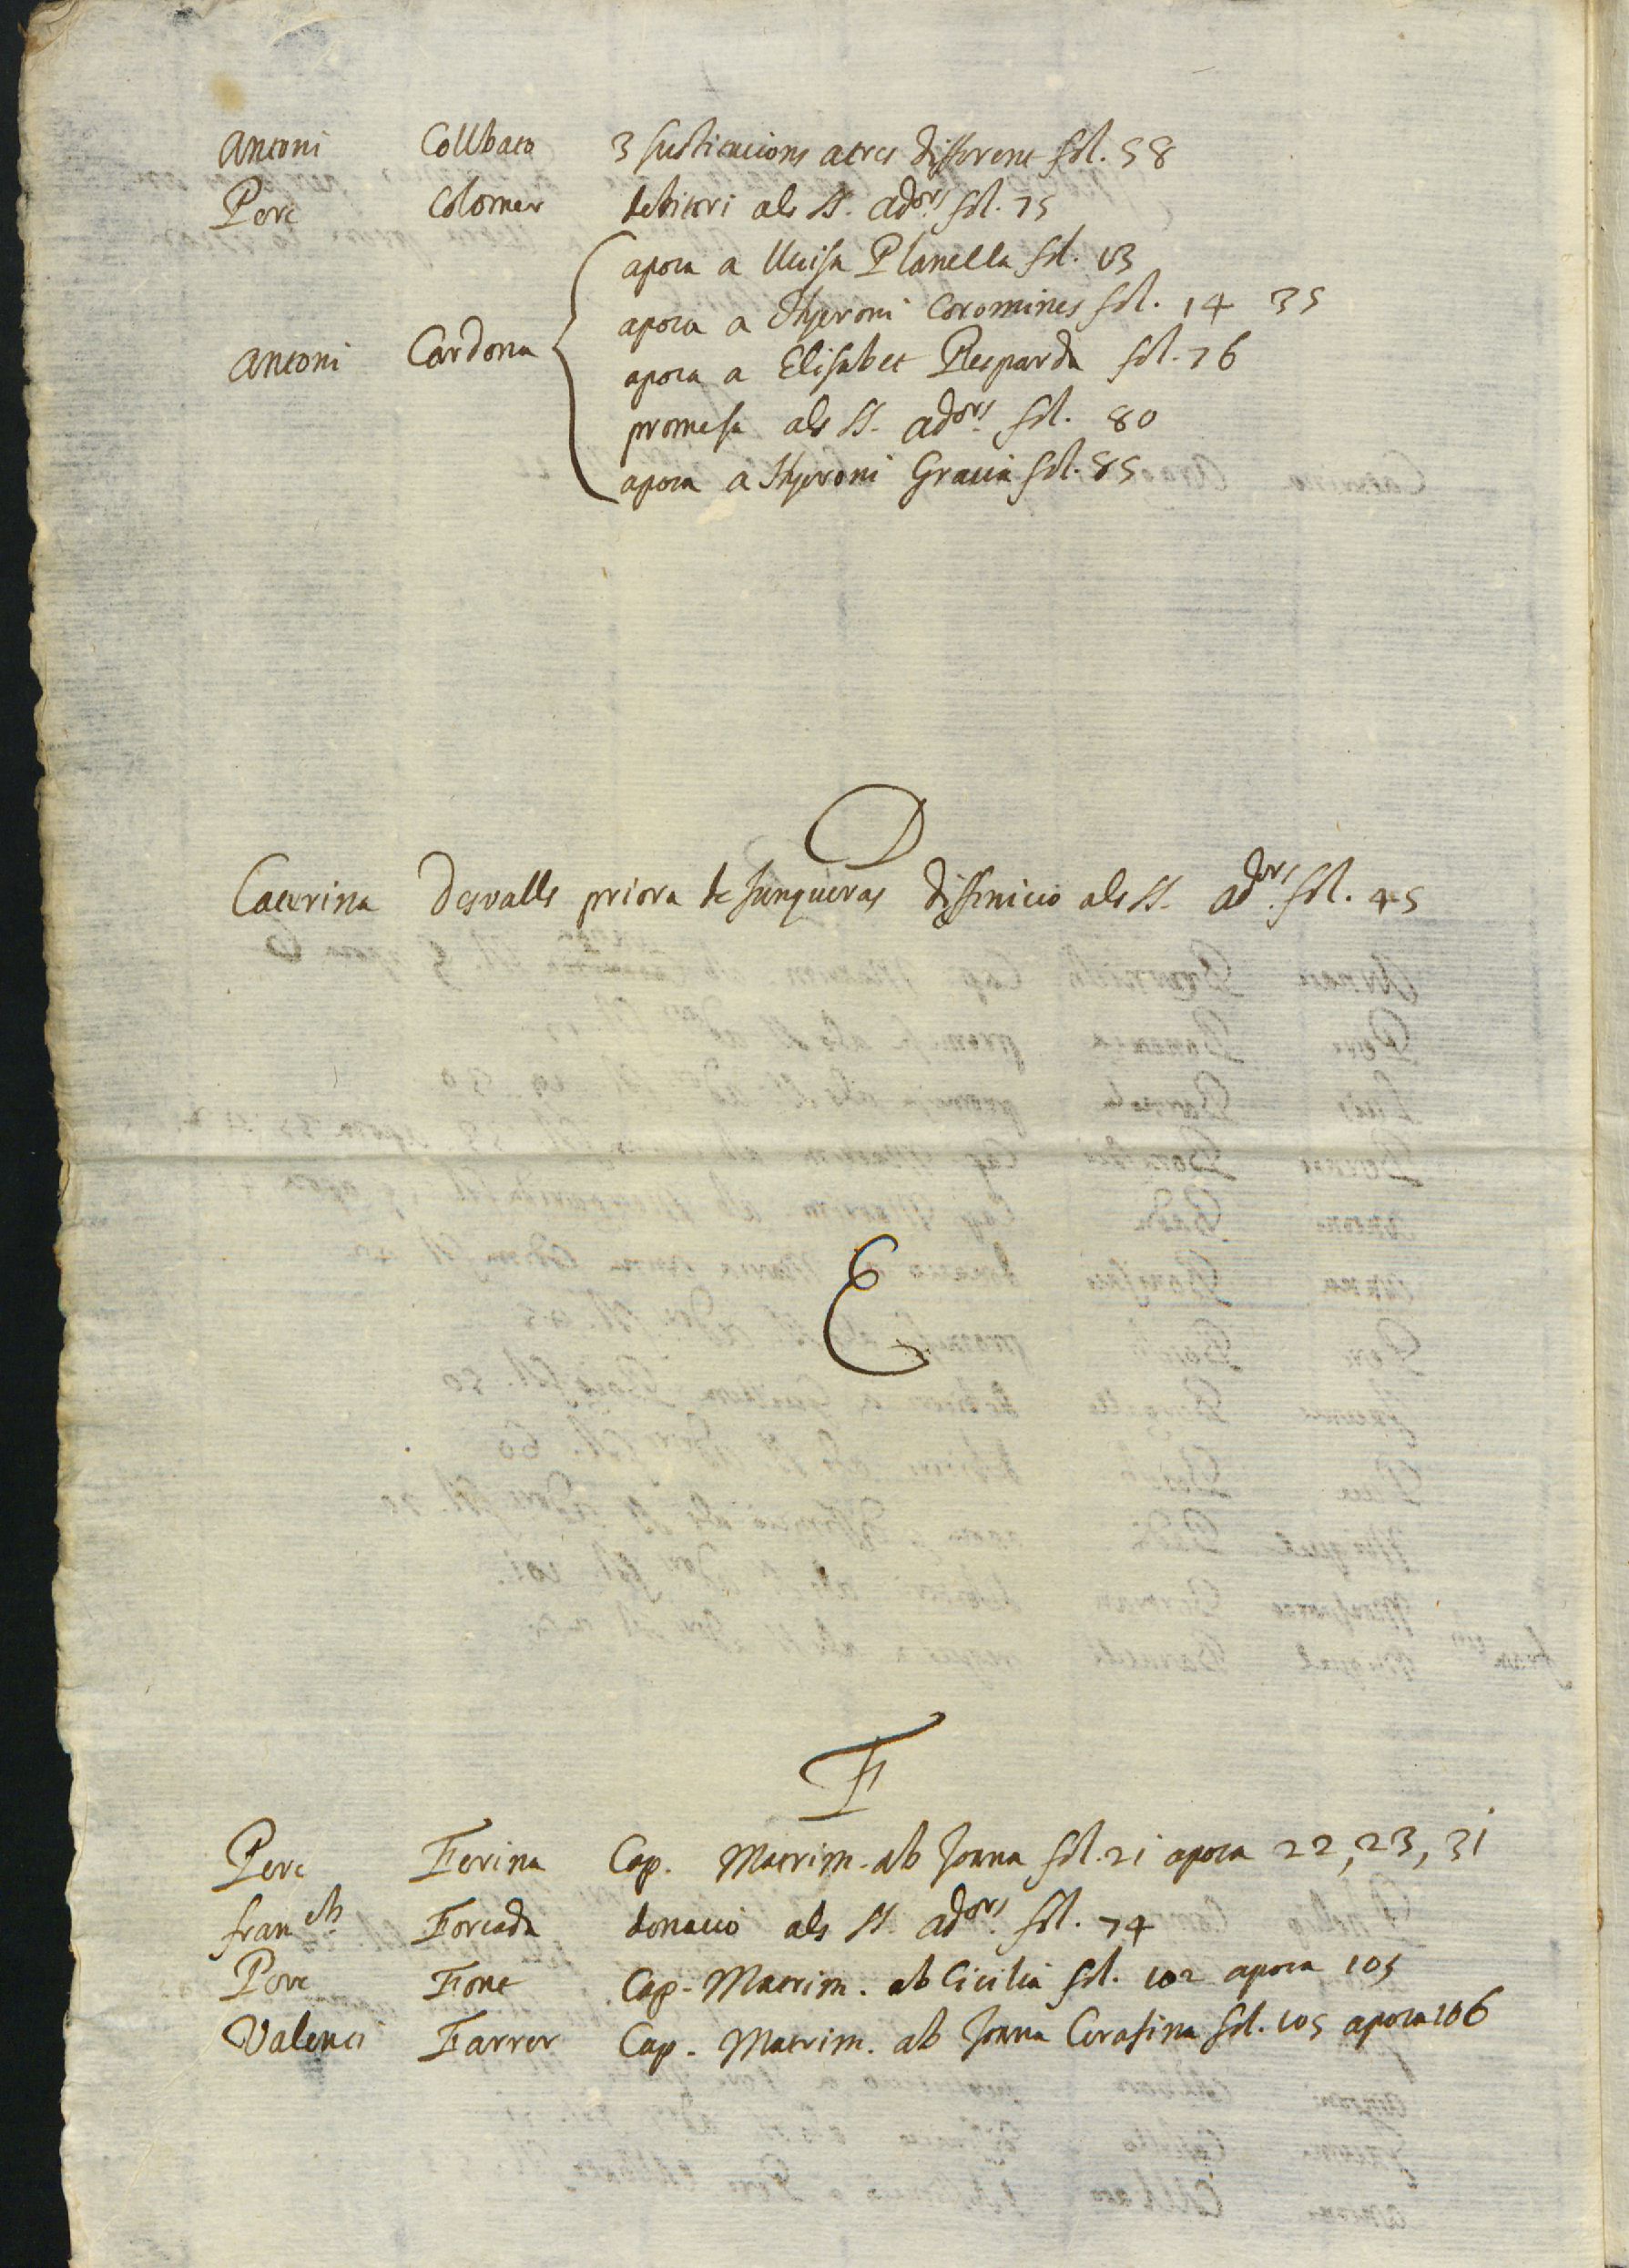 Antoni Collbato 3 sustitucions a tres different fol. 58
Pere Colomer debitori als SS. adors fol. 75
apoca a Lluisa Planella fol. 13
apoca a Hyeroni Coromines fol. 14 35
Antoni Cardona
apoca a Elisabet fol. 76
promesa als SS. adors fol. 80
apoca a Hyeroni Gracia fol. 85
D
Caterina Desvalls priora de Junqueras diffinicio als SS. adors fol. 45
E
F
Pere Ferina Cap. Matrim. ab Joana fol. 21 apoca 22, 23, 31
Franch Forcada donacio als SS. adors fol. 74
Pere Font Cap. Matrim. ab Cicilia fol. 102 apoca 105
Valenti Farrer Cap. Matrim. ab Joana Cerafina fol. 105 apoca 106